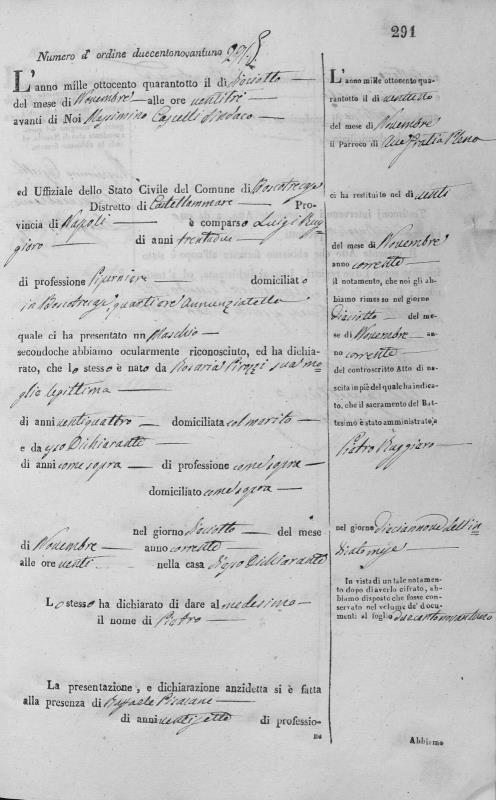 291
Numero d' ordine duecentonovantuno 291
L'anno mille ottocento quarantotto il dì Diciotto
del mese di Novembre alle ore ventitrè
avanti di Noi Sindaco
ed Uffiziale dello Stato Civile del Comune di Boscotrecase
Distretto di Castellammare Pro-
vincia di Napoli è comparso Luigi Rug-
giero di anni trentadue
di professione domiciliato
in Boscotrecase quartiere Annunziatella
quale ci ha presentato un Maschio
secondochè abbiamo ocularmente riconosciuto, ed ha dichia-
rato, che lo stesso è nato da Rosaria sua mo-
glie legittima
di anni ventiquattro domiciliata col marito
e da esso Dichiarante
di anni come sopra di professione come sopra
domiciliato come sopra
nel giorno Diciotto del mese
di Novembre anno corrente
alle ore venti nella casa di esso Dichiarante
Lo stesso ha dichiarato di dare al medesimo
il nome di Pietro
La presentazione, e dichiarazione anzidetta si è fatta
alla presenza di Raffaele
di anni ventisette di professio-
ne
L'anno mille ottocento qua-
rantotto il dì ventuno
del mese di Novembre
il Parroco di Ave Gratia Plena
ci ha restituito nel dì venti
del mese di Novembre
anno corrente
il notamento, che noi gli ab-
biamo rimesso nel giorno
Diciotto del me-
se di Novembre an-
no corrente
del controscritto Atto di na-
scita in piè del quale ha indica-
to, che il sacramento del Bat-
tesimo è stato amministrato a
Pietro Ruggiero
nel giorno diciannove dell'in-
dicato mese
In vista di un tale notamen-
to dopo di averlo cifrato, ab-
biamo disposto che fosse con-
servato nel volume de' docu-
menti al foglio duecentonovantuno
Abbiamo